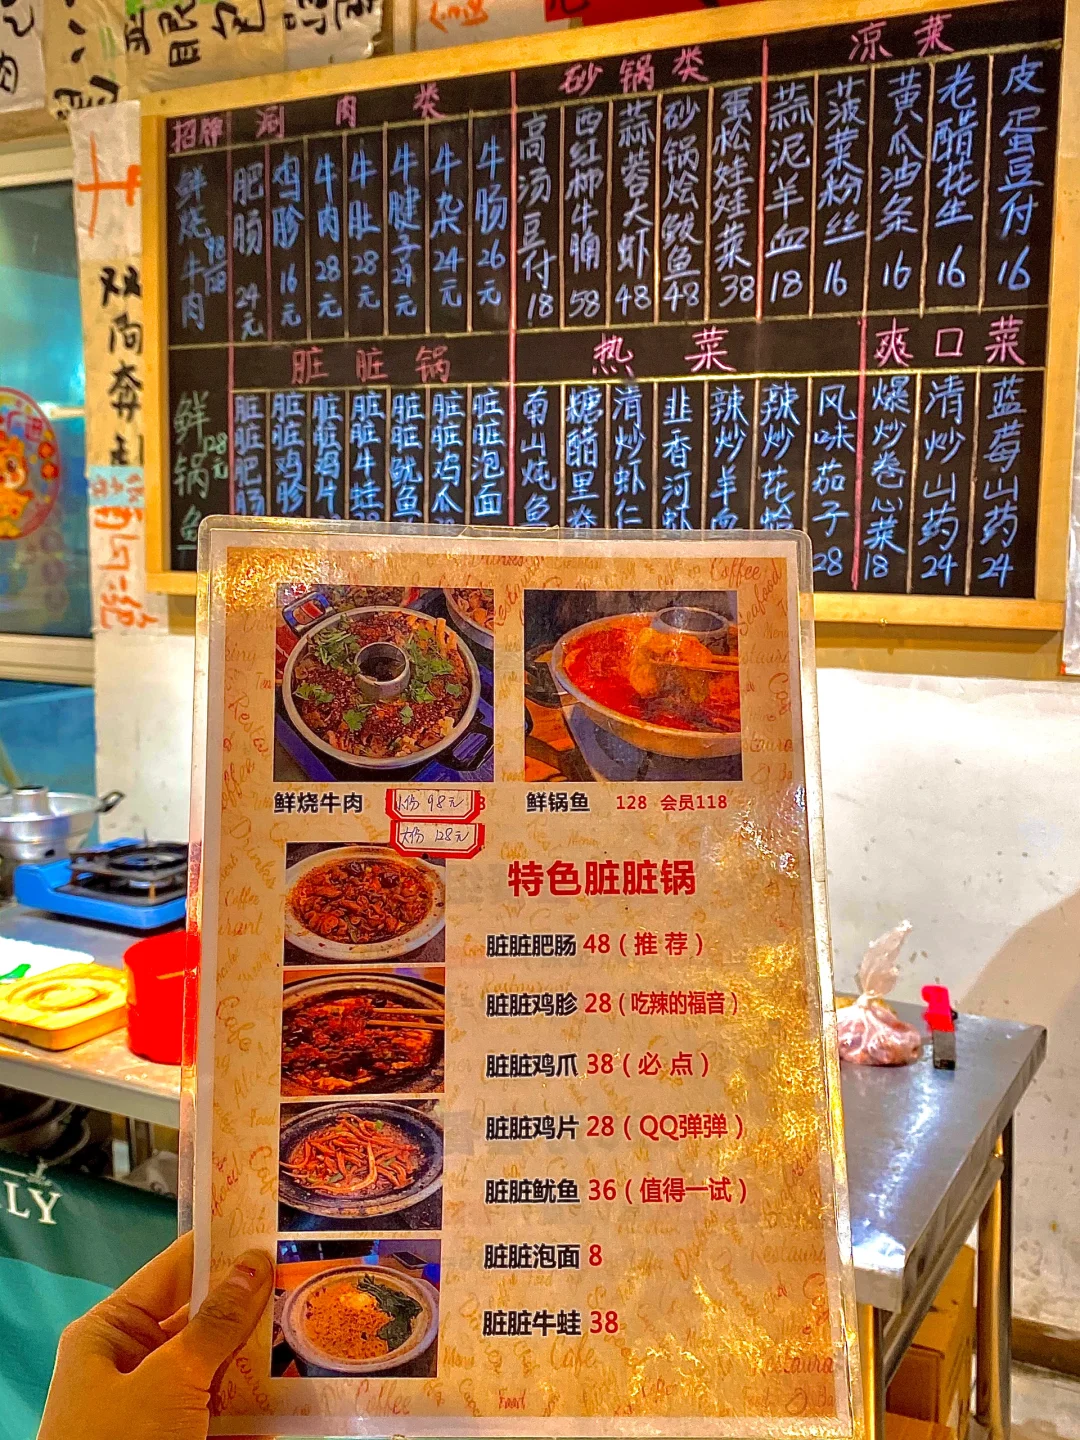 招牌
鲜烧牛肉 98 128
鲜锅鱼 128元
涮肉类
肥肠 24元
鸡胗 16元
牛肉 28元
牛肚 28元
牛腱子 29元
牛杂 24元
牛肠 26元
砂锅类
高汤豆付 18
西红柿牛腩 58
蒜蓉大虾 48
砂锅烩鲅鱼 48
蛋松娃娃菜 38
凉菜
蒜泥羊血 18
菠菜粉丝 16
黄瓜油条 16
老醋花生 16
皮蛋豆付 16
脏脏锅
脏脏肥肠
脏脏鸡胗
脏脏鸡片
脏脏牛蛙
脏脏鱿鱼
脏脏鸡爪
脏脏泡面
热菜
南山炖鱼
糖醋里脊
清炒虾仁
韭香河虾
辣炒羊血
辣炒花蛤
风味茄子 28
爽口菜
爆炒卷心菜 18
清炒山药 24
蓝莓山药 24
双向奔
LY
鲜烧牛肉
小份 98元
大份 128元
鲜锅鱼 128 会员118
特色脏脏锅
脏脏肥肠 48（推荐）
脏脏鸡胗 28（吃辣的福音）
脏脏鸡爪 38（必点）
脏脏鸡片 28（QQ弹弹）
脏脏鱿鱼 36（值得一试）
脏脏泡面 8
脏脏牛蛙 38